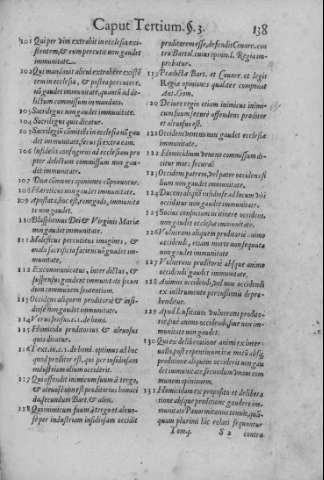 Caput Tertium. §. 3. 138
101 Qui per vim extrahit in ecclesia exi-
stentem, & cum percutit non gaudet
immunitate.
102 Qui mandavit alicui extrahere existē
tem in ecclesia, & postea percutere,
nō gaudet immunitate, quantū ad de-
lictum commissum in mandato.
103 Sacrilegus non gaudet immunitate.
104 Sacrilegus qui dicatur.
105 Sacrilegus cōmittēs in ecclesia nō gau
det immunitate, secus si extra eam.
106 Infidelis confugiens ad ecclesiam pro
pter delictum commissum non gau-
det immunitate.
107 Duæ cōmunes opiniones cōponuntur.
108 Hæreticus non gaudet immunitate.
109 Apostata, hoc est, renegado, immunita
te non gaudet.
110 Blasphemus Dei & Virginis Mariæ
non gaudet immunitate.
111 Maleficus percutiens imagines, &
mala sacrificia faciens nō gaudet im-
munitate.
112 Excommunicatus, interdictus, &
suspensus gauderet immunitate secun
dum communem sententiam.
113 Occidens aliquem proditoriè & insi-
diosè non gaudet immunitate.
114 Verus sensus c. 1. de homi.
115 Homicida proditorius & aleuosus
quis dicatur.
116 Text. in c. 1. de homi. optimus ad hoc
quod proditor est, qui per insidias aut
industriam alium occiderit.
117 Qui offendit inimicum suum à tergo,
& aleuosus est proditorius homici
da secundum Bart. & alios.
118 Qui inimicum suum à tergo et aleuo-
sè per industriam insidiosè occidit
proditorem esse, defendit Couar. con-
tra Bartol. cuius opinio l. Regia im-
probatur.
119 Probabilia Bart. et Couar. et legis
Regiæ opiniones qualiter componat
Aut. Sum.
120 De iure regio etiam inimicus inimi-
cum suum securè offendens proditor
et aleuosus est.
121 Occidens dominum non gaudet ecclesiæ
immunitate.
122 Homicidium domini commissum di-
citur mors securæ.
123 Occidens patrem, vel pater occidens fi-
lium non gaudet immunitate.
124 Occidens insidiosè
occidatur non gaudet immunitate.
125 Socius confœdiatus itinere occidens,
non gaudet immunitate.
126 Vulnerans aliquem proditoriè animo
occidendi, etiam morte non sequuta
non gaudet immunitate
127 Vulnerans proditoriè absque animo
occidendi gaudet immunitate.
128 Animus occidendi, vel non occidendi
ex instrumento percussionis depræ-
henditur.
129 Apud Lusitanos vulnerans prodito-
riè qui animo occidendi, siue non im-
munitate non gaudet.
130 Qui ex deliberatione animi ex inter-
uallo, post repentinam rixā
aliquem occiderit non gau
det immunitate, secundum com
munem opinionem.
131 Homicidium ex proposito et delibera
tione absque proditione gaudere im-
munitate Panormitanus tenuit, quā-
quam plurimi hic relati sequuntur
Tom. 4. S 2 contra